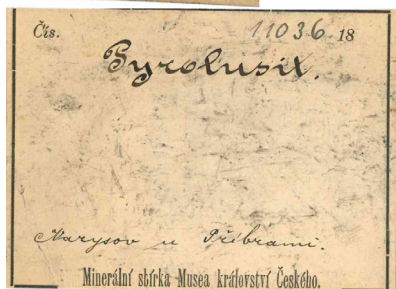 Čís. 11036 18
Pyrolusit.
Narysov u Příbrami.
Minerální sbírka Musea království Českého.